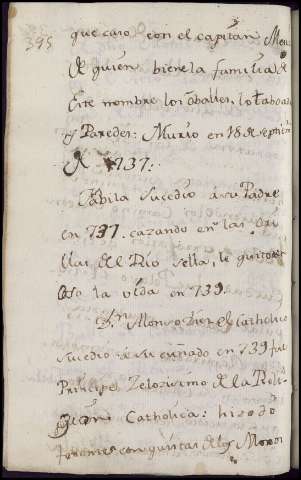 395
que caso con el capitan
de quien biene la familia de
Este nombre los oballes, lo taboadas
y Paredes: Murio en 18 de septiem
de 737.
Fabila Sucedio á su Padre
en 737. cazando en las ori
llas del Rio sella, le quito el
Oso la vida en 739.
Dn. Alonso el Catholico
sucedio á su cuñado en 739 fue
Principe Zelozissimo de la Reli
gion Catholica: hizo
con quintas de los Moros